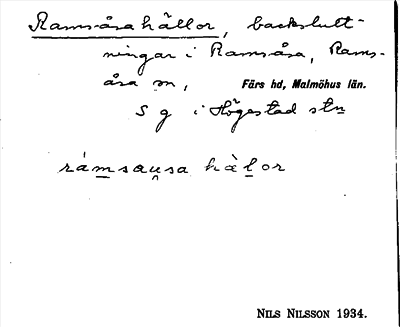 Ramsåsahällor, backslutt-
ningar i Ramsåsa, Rams-
åsa sn, Färs hd, Malmöhus län.
S g i Högestad stn
rámsau̯sa hàl̲or
NILS NILSSON 1934.